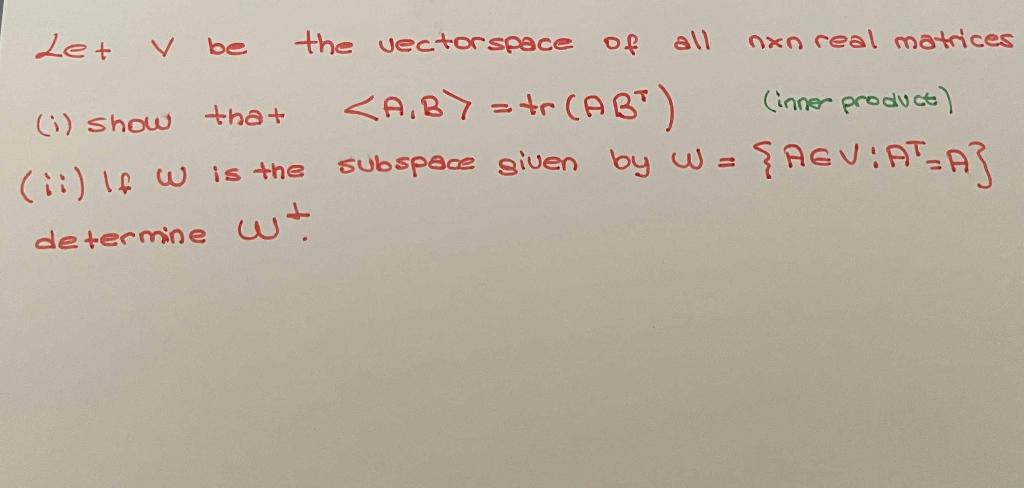 Let V be the vectorspace of all nxn real matrices
(i) show that <A,B> = tr(ABᵀ) (inner product)
(ii) If W is the subspace given by W = {A∈V : Aᵀ=A}
determine W⊥.